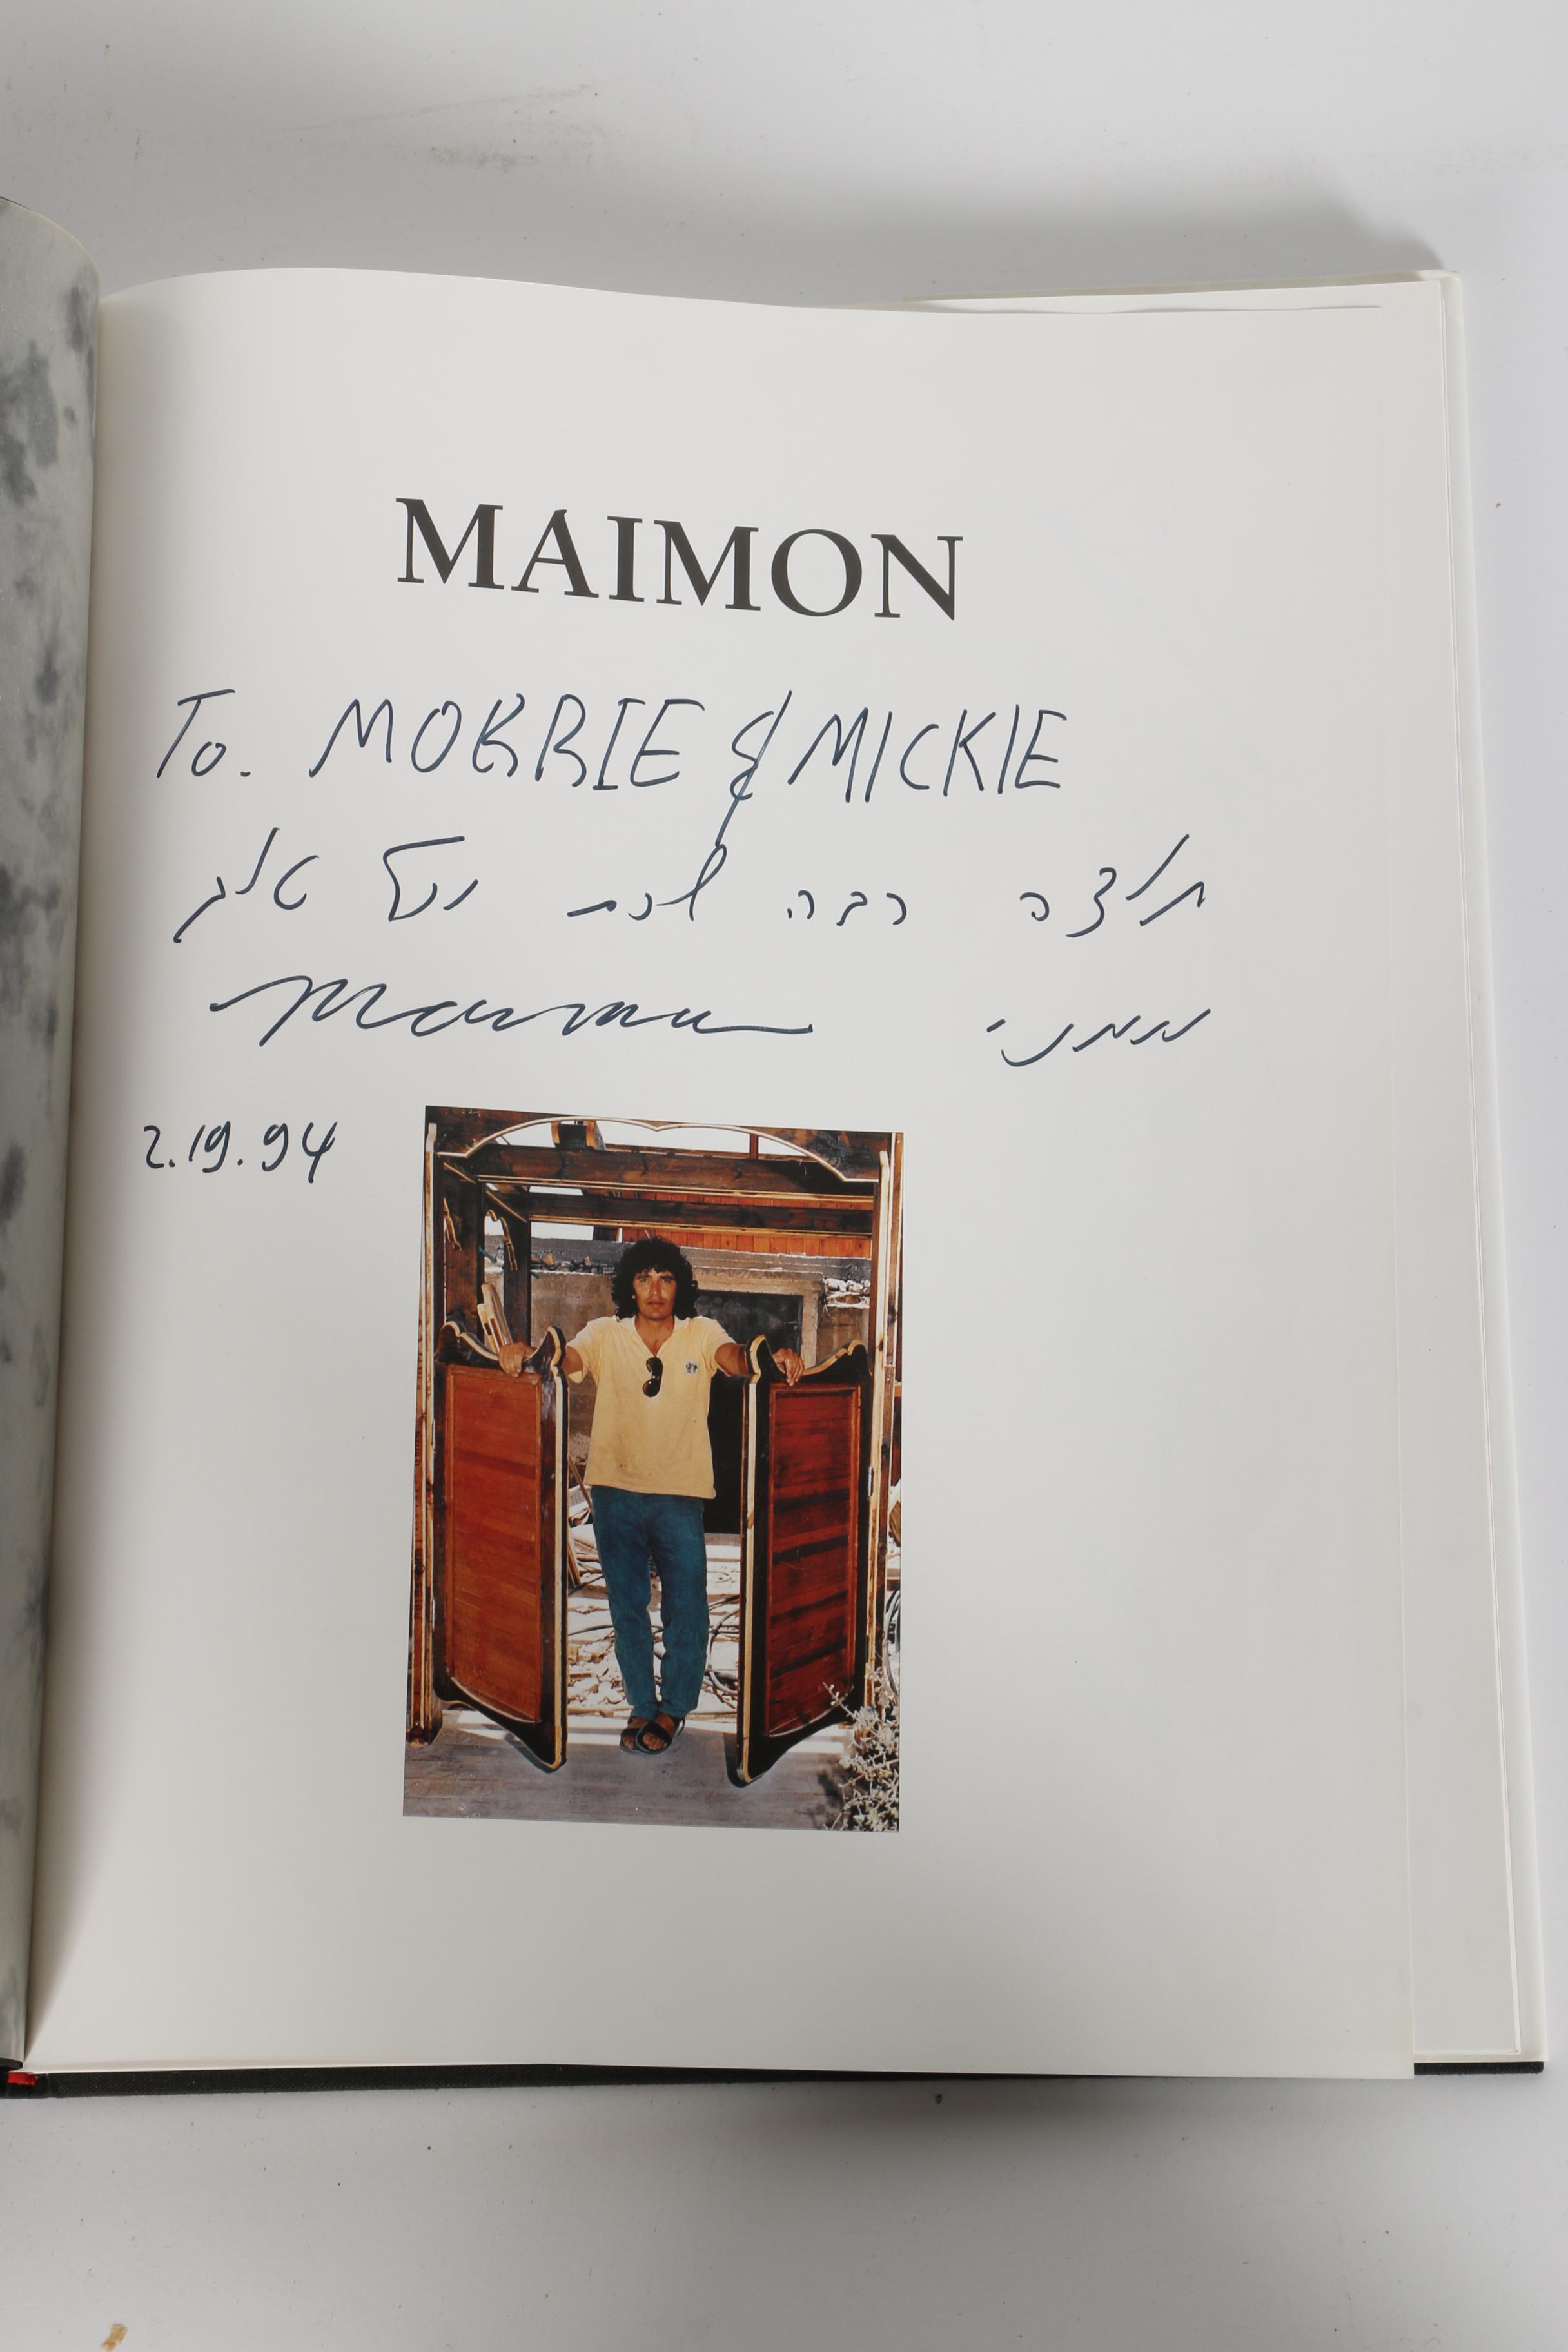 MAIMON
To. MORRIE & MICKIE
תודה רבה לכם וכל טוב
Maimon ממני
2.19.94